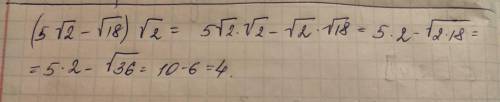 (5√2 - √18)√2 = 5√2·√2 - √2·√18 = 5·2 - √2·18 =
= 5·2 - √36 = 10 - 6 = 4.